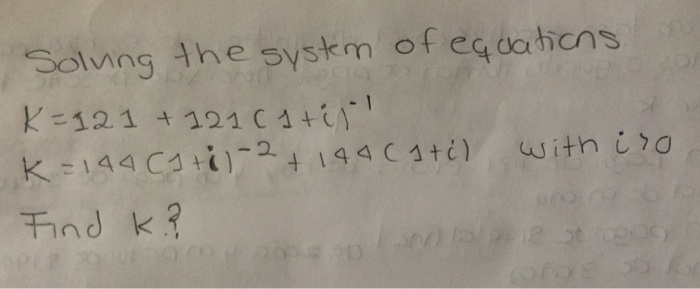 Solving the system of equations
K=121 + 121(1+i)^-1
K=144(1+i)^-2 + 144(1+i) with i>0
Find k?